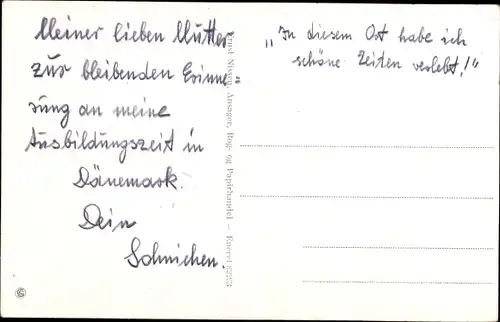 Meiner lieben Mutter
zur bleibenden Erinne=
rung an meine
Ausbildungszeit in
Dänemark.
Dein
Sohnichen.
„In diesem Ort habe ich
schöne Zeiten verlebt!"
Nissen, Ansager, Bog- og Papirhandel - Eneret